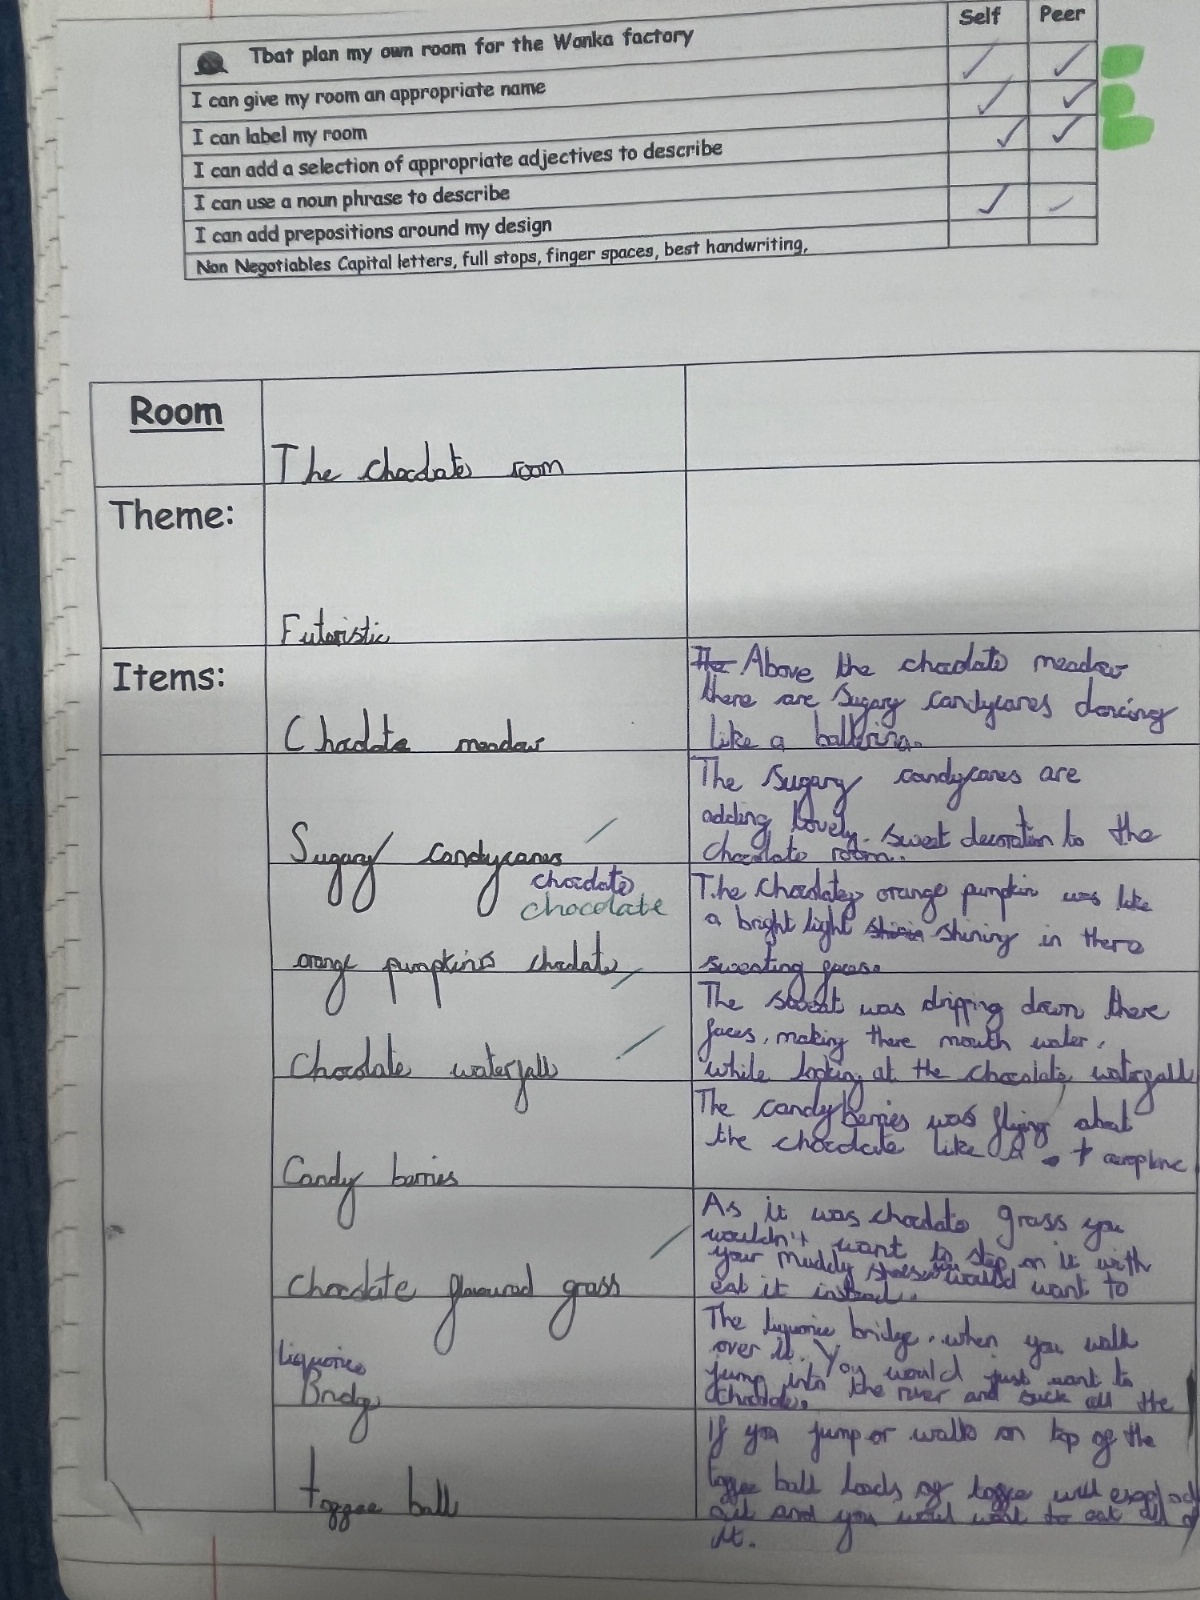 Self Peer
Tbat plan my own room for the Wonka factory
I can give my room an appropriate name
I can label my room
I can add a selection of appropriate adjectives to describe
I can use a noun phrase to describe
I can add prepositions around my design
Non Negotiables Capital letters, full stops, finger spaces, best handwriting,
Room
The chocolate room
Theme:
Futuristic
Items:
Chocolate meadow
Above the chocolate meadow
there are sugary candycanes dancing
like a ballerina.
Sugary candycanes
The sugary candycanes are
adding lovely. sweet decoration to the
chocolate room.
chocolate
chocolate
orange pumpkins chocolate
The chocolatey orange pumpkin was like
a bright light shining in there
sweating faces.
Chocolate waterfall
The sweat was dripping down there
faces, making there mouth water,
while looking at the chocolate waterfall
Candy berries
The candy berries was flying about
the chocolate like a aeroplane
Chocolate flavoured grass
As it was chocolate grass you
wouldn't want to step on it with
your muddy shoes you would want to
eat it instead.
liquorice
Bridge
The liquorice bridge, when you walk
over it. You would just want to
jump into the river and suck all the
chocolate.
toffee ball
If you jump or walk on top of the
toffee ball loads of toffee will
out and you want to eat all of
it.